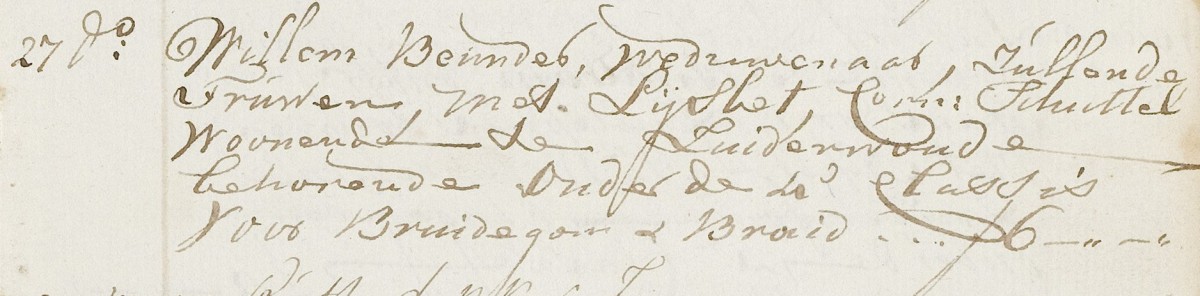 27 do: Willem Beunder, Wedruwenaar, Zullende
Truwen, met. Lijsbet Corn: Schuttel
Woonende te Zuiderwoude
behorende onder de 4e Classis
Voor Bruidegom & Bruid .... f6 —„—„